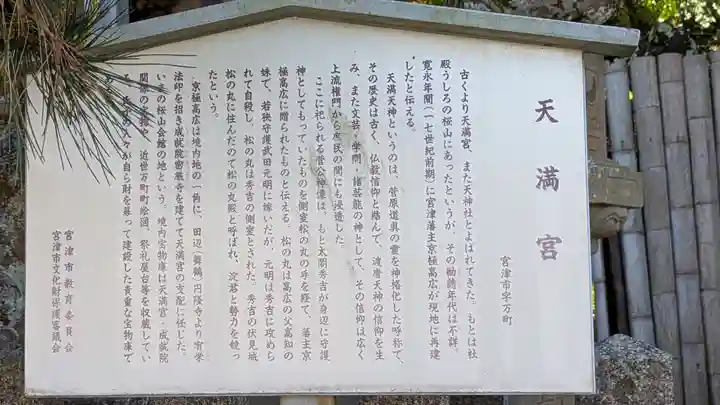 天満宮
宮津市字万町
古くより天満宮、また天神社とよばれてきた。もとは社
殿うしろの桜山にあったというが、その勧請年代は不詳。
寛永年間(一七世紀前期)に宮津藩主京極高広が現地に再建
したと伝える。
天満天神というのは、菅原道真の霊を神格化した呼称で、
その歴史は古く、仏教信仰と結んで、渡唐天神の信仰を生
み、また文芸・学問・諸芸能の神として、その信仰は広く
上流権門から庶民の間にも浸透した。
ここに祀られる菅公神像は、もと太閤秀吉が身辺に守護
神としてもっていたものを側室松の丸の手を経て、藩主京
極高広に贈られたものと伝える。松の丸は高広の父高知の
妹で、若狭守護武田元明に嫁いだが、元明は秀吉に攻めら
れて自殺し、松の丸は秀吉の側室とされた。秀吉の伏見城
松の丸に住んだので松の丸殿と呼ばれ、淀君と勢力を競っ
たという。
京極高広は境内地の一角に、田辺(舞鶴)円隆寺より宥学
法印を招き成就院密厳寺を建てて天満宮の支配に任した。
いまの桜山会館の地という。境内宝物庫は天満宮・成就院
関係の宝物や、近世万町町絵図、祭礼屋台等を収蔵してい
人々が自ら財を募って建設した貴重な宝物庫で
宮津市教育委員会
宮津市文化財保護審議会